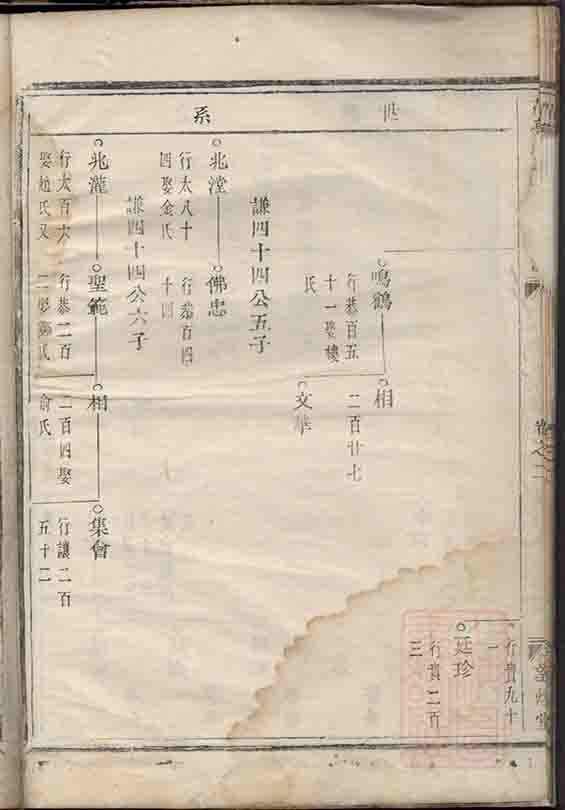 世系
卷之二
行貴九十
一
廷珍
行貴二百
三
鳴鶴
行恭百五
十一娶樓
氏
相
二百廿七
文華
謙四十四公五子
兆瀅
行太八十
四娶金氏
佛忠
行恭百四
十四
謙四十四公六子
兆瀧
行太百六
娶趙氏又
聖範
行恭二百
相
二百四娶
俞氏
集會
行讓二百
五十二